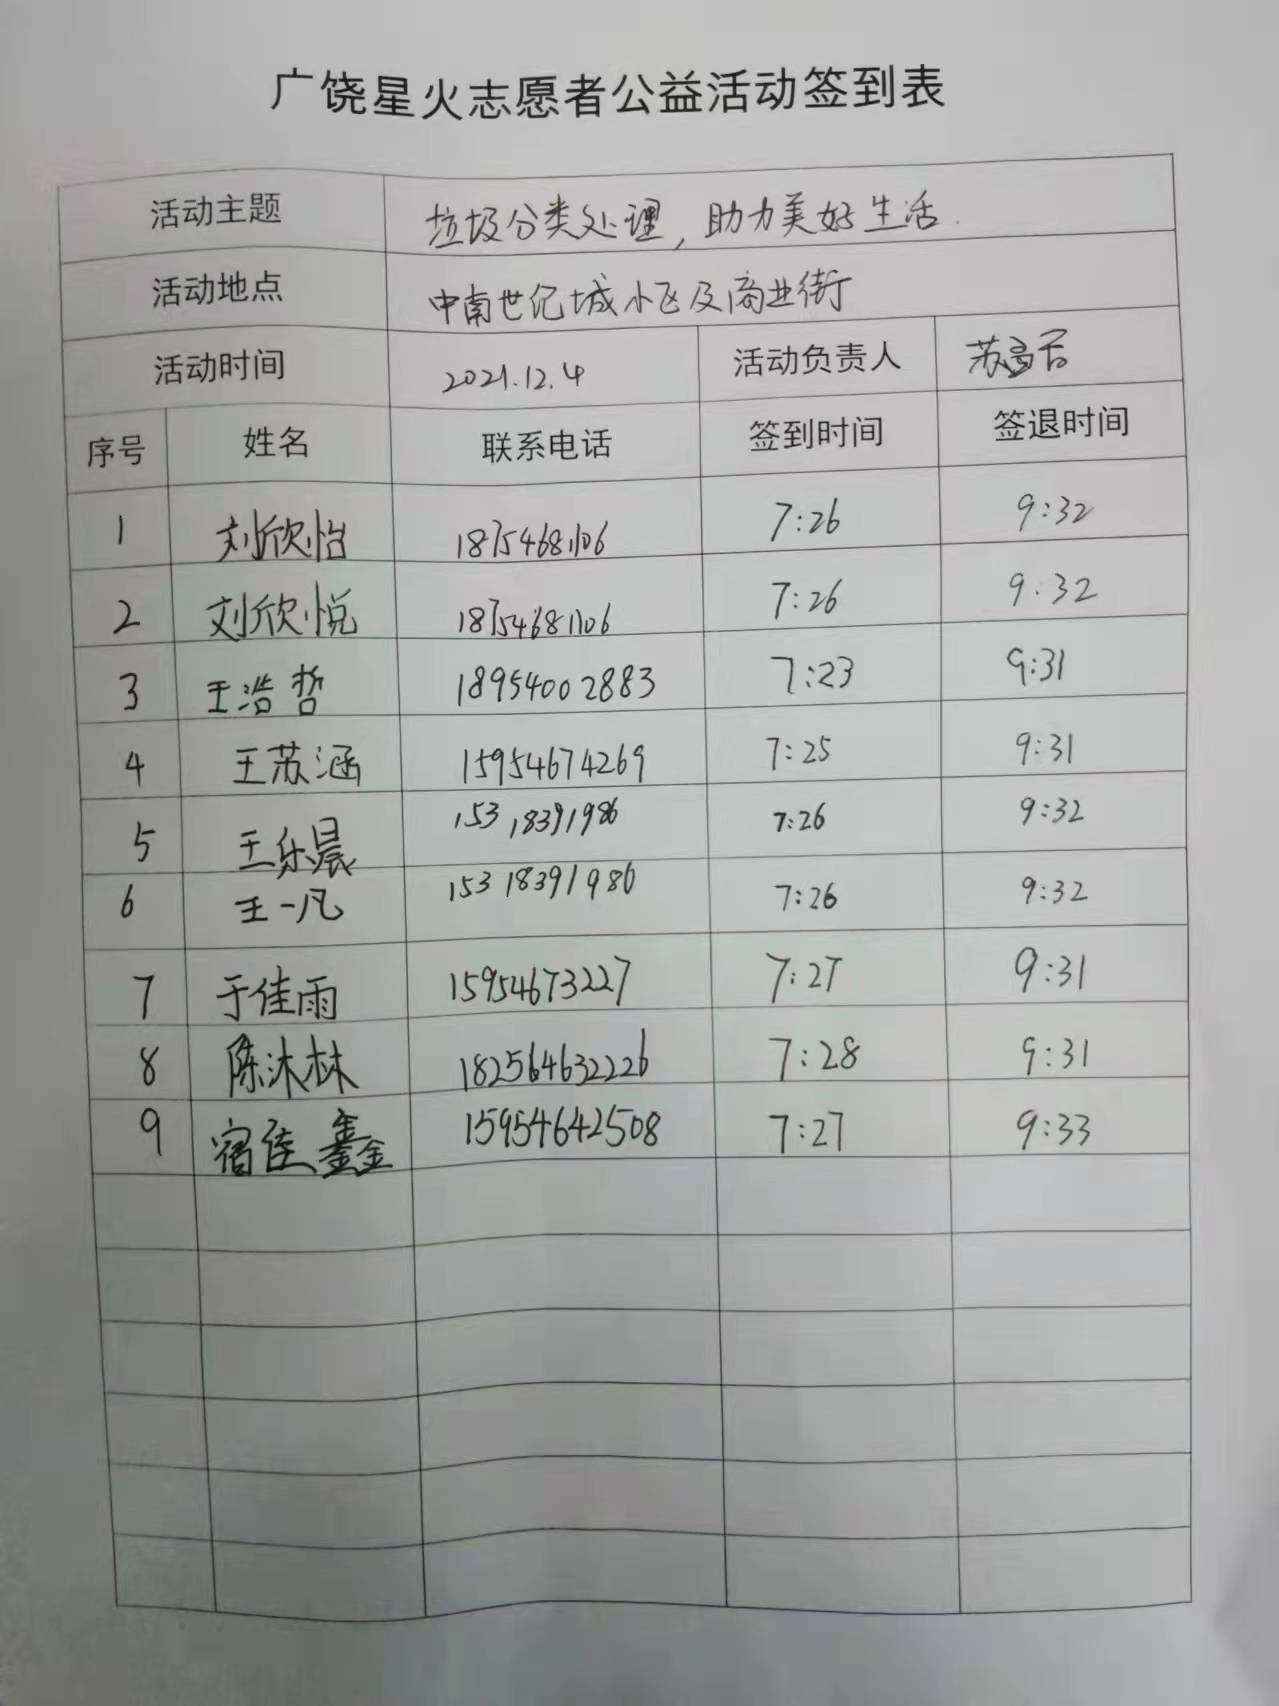 广饶星火志愿者公益活动签到表
活动主题 垃圾分类处理，助力美好生活.
活动地点 中南世纪城小区及商业街
活动时间 2021.12.4 活动负责人 苏
序号 姓名 联系电话 签到时间 签退时间
1 刘欣怡 18754681106 7:26 9:32
2 刘欣悦 18754681106 7:26 9:32
3 王浩哲 18954002883 7:23 9:31
4 王苏涵 15954674269 7:25 9:31
5 王乐晨 15318391986 7:26 9:32
6 王一凡 15318391986 7:26 9:32
7 于佳雨 15954673227 7:27 9:31
8 陈沐林 182564632226 7:28 9:31
9 宿佳鑫 15954642508 7:27 9:33